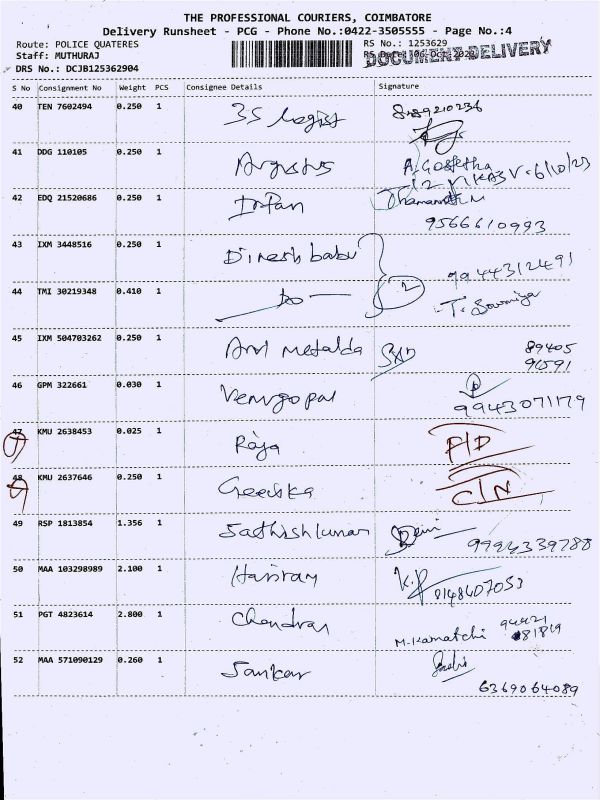 THE PROFESSIONAL COURIERS, COIMBATORE
Delivery Runsheet - PCG - Phone No.:0422-3505555 - Page No.:4
Route: POLICE QUATERES
RS No.: 1253629
Staff: MUTHURAJ
DOCUMENT DELIVERY
DRS No.: DCJB125362904
S No Consignment No Weight PCS Consignee Details Signature
40 TEN 7602494 0.250 1 3S Logist 8489210236
41 DDG 110105 0.250 1 Argustus
42 EDQ 21520686 0.250 1 Irfan
9566610993
43 IXM 3448516 0.250 1 Dinesh babu 9944312491
44 TMI 30219348 0.410 1 Do 2 T. Sowmiya
45 IXM 504703262 0.250 1 Arul Metalda 89405
96591
46 GPM 322661 0.030 1 Venugopal
9943071179
47 KMU 2638453 0.025 1 Raja P/D
48 KMU 2637646 0.250 1 Geeiska C/N
49 RSP 1813854 1.356 1 Sathishkumar
9994339788
50 MAA 103298989 2.100 1 Hariram K.P 8148407053
51 PGT 4823614 2.800 1 Chandran M. Kamatchi 94421
81819
52 MAA 571090129 0.260 1 Sankar
6369064089